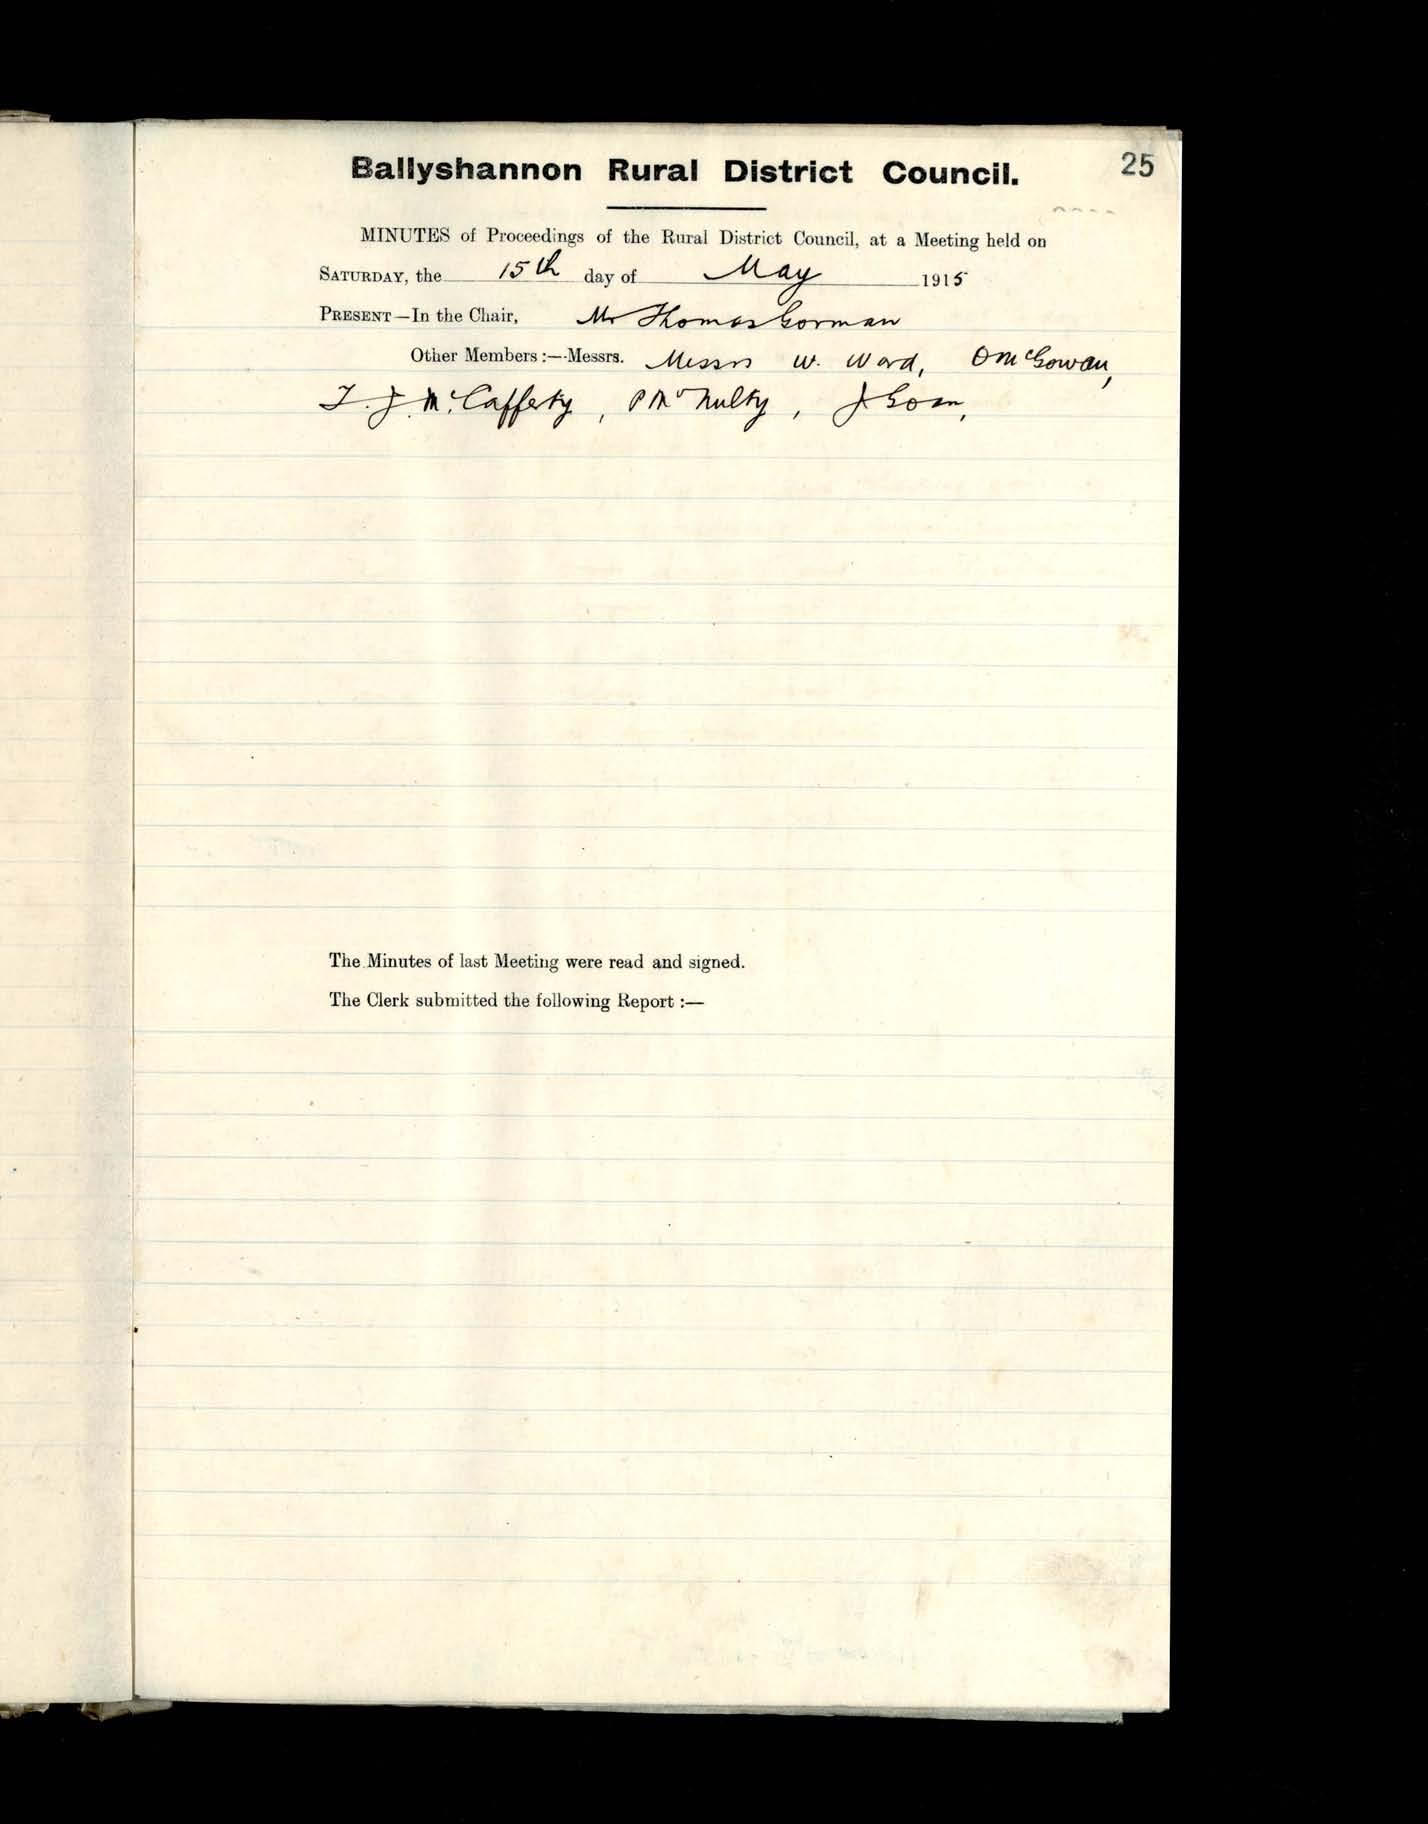 Ballyshannon Rural District Council.
25
MINUTES of Proceedings of the Rural District Council, at a Meeting held on
SATURDAY, the 15th day of May 1915
PRESENT—In the Chair, Mr Thomas Gorman
Other Members :—Messrs. Messrs W. Ward, O McGowan,
T. J. McCafferty, P McNulty, J Goan,
The Minutes of last Meeting were read and signed.
The Clerk submitted the following Report :—